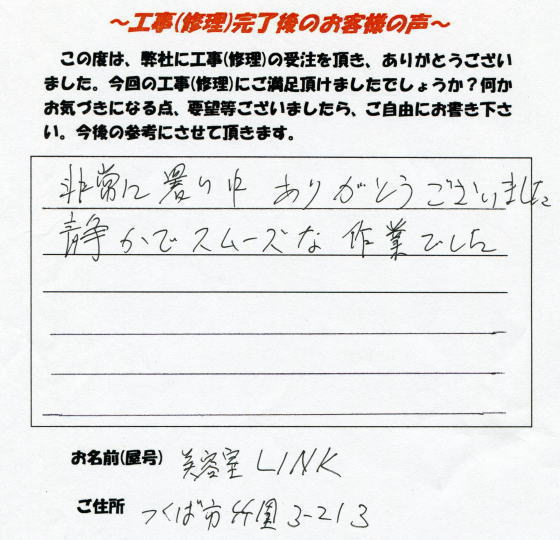 ～工事(修理)完了後のお客様の声～
この度は、弊社に工事(修理)の受注を頂き、ありがとうござい
ました。今回の工事(修理)にご満足頂けましたでしょうか？何か
お気づきになる点、要望等ございましたら、ご自由にお書き下さ
い。今後の参考にさせて頂きます。
非常に暑い中 ありがとうございました
静かでスムーズな 作業でした
お名前(屋号) 美容室 LINK
ご住所 つくば市竹園3-213